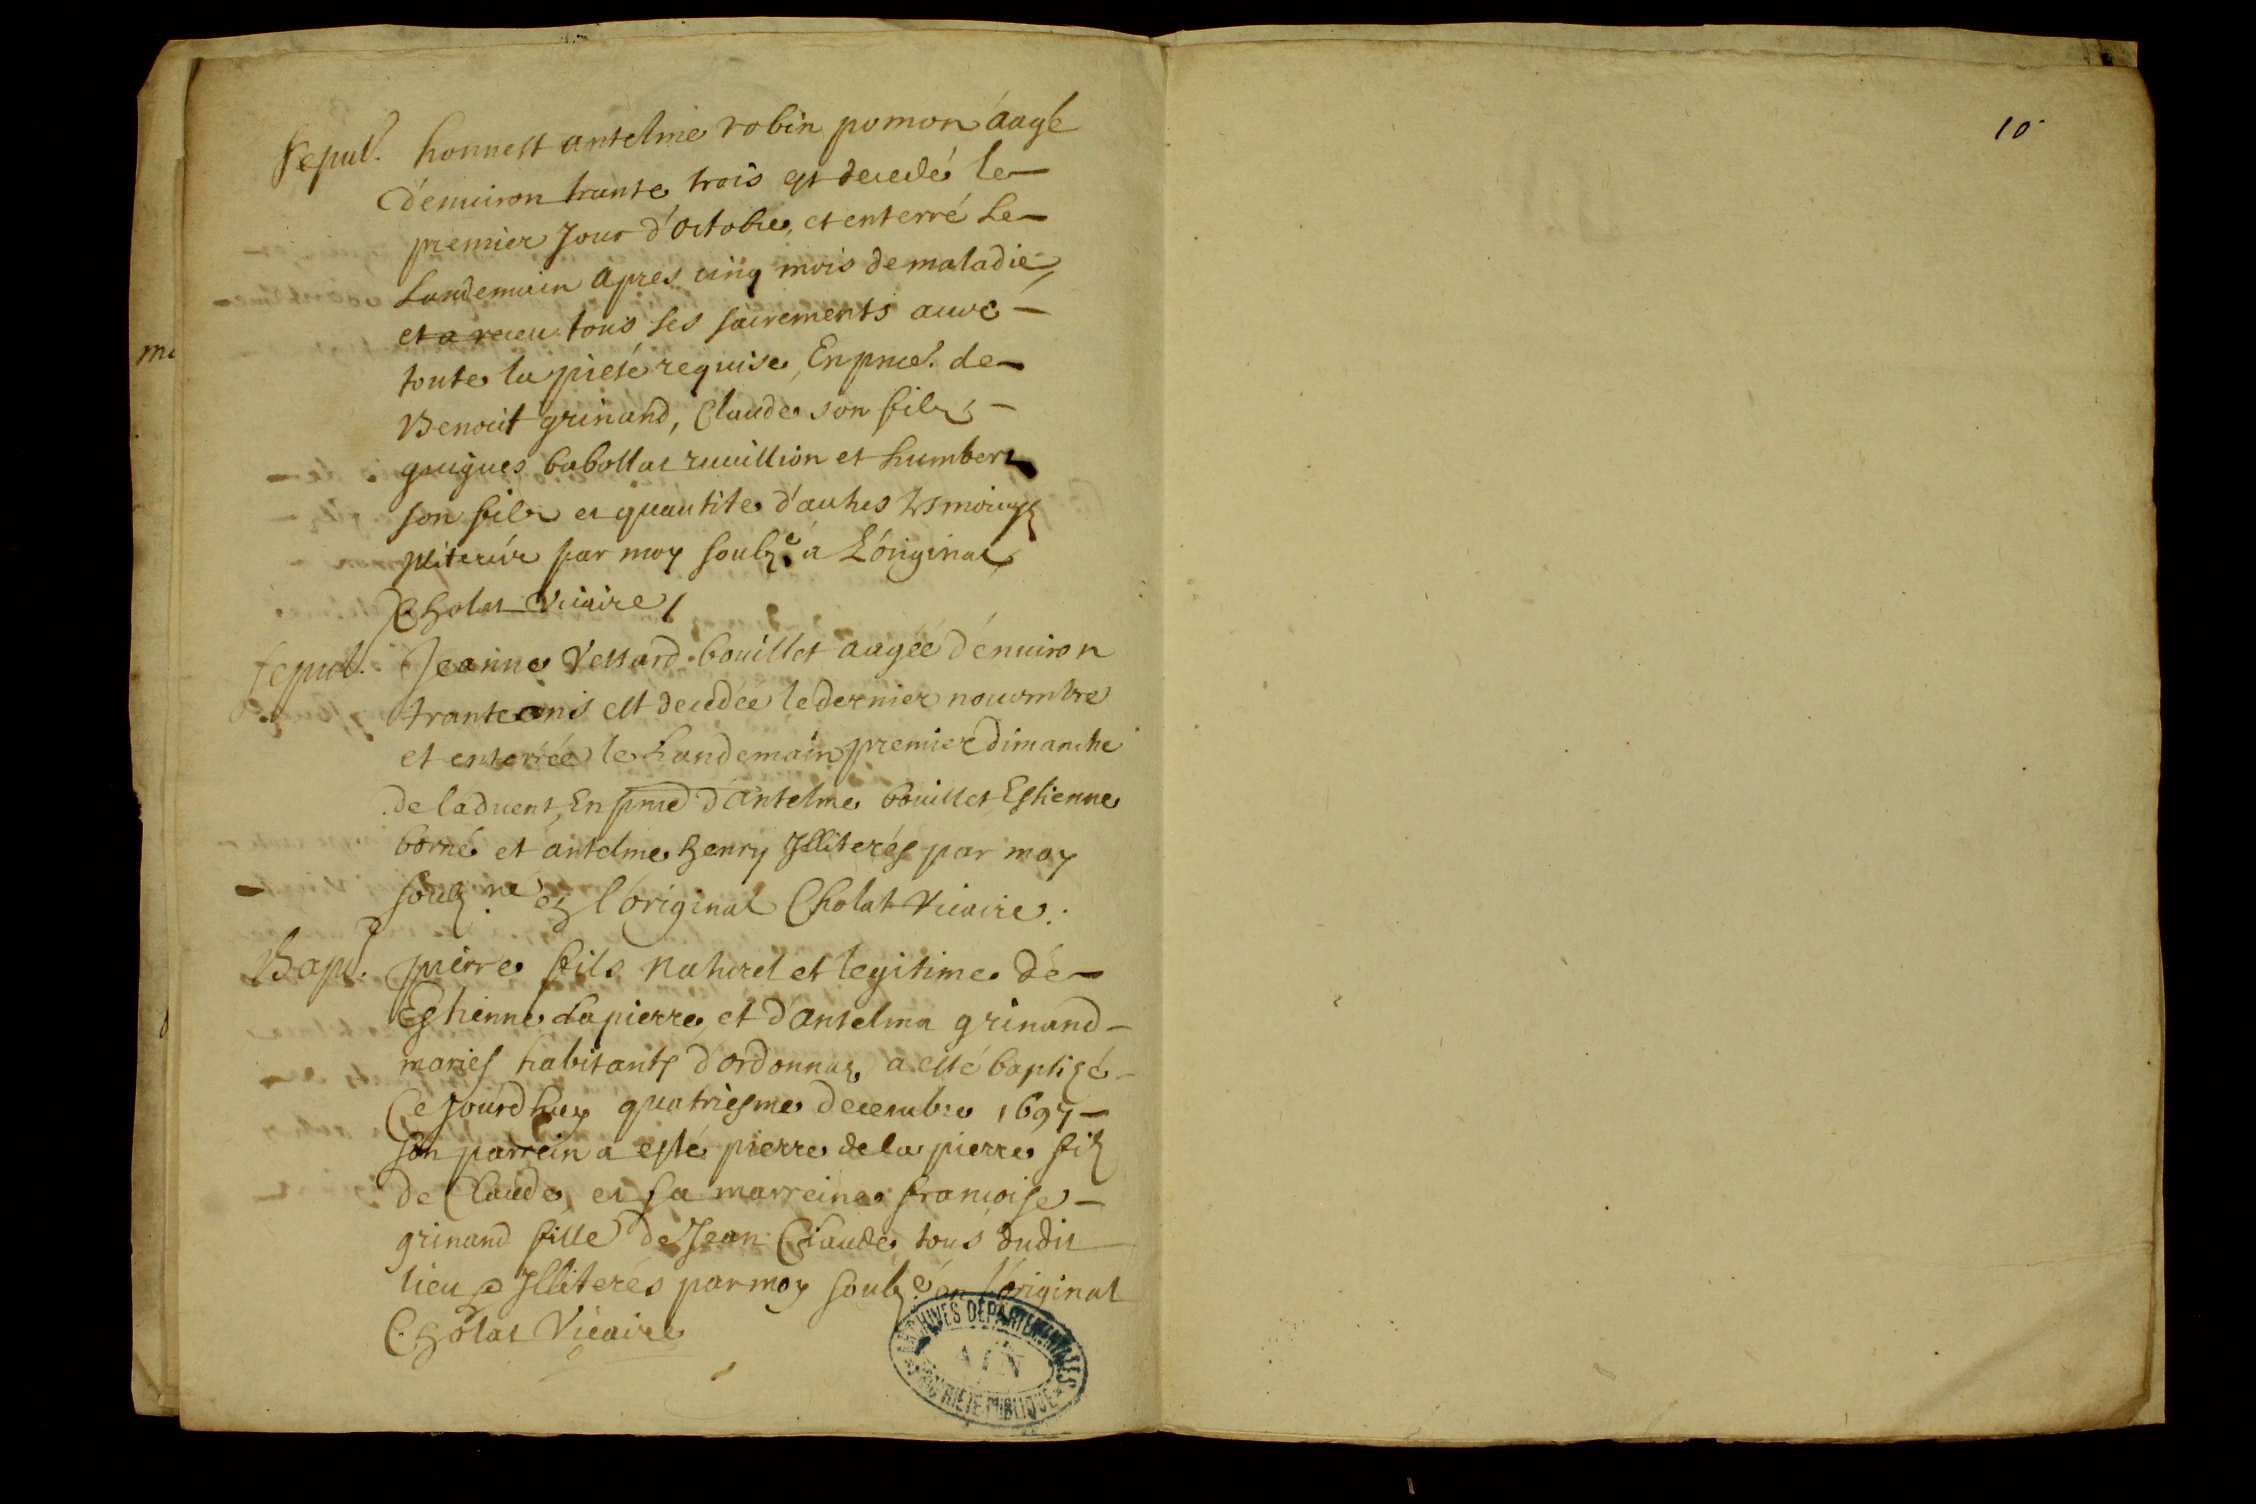 10
Sepul. honnest antelme robin pomon aagé
d'enuiron trante trois est decedé le
premier Jour d'octobre, et enterré Le
Landemain apres cinq mois de maladie,
et a receu tous ses sacrements auec
toute la pieté requise, En pnce. de
Benoit grinand, Claude son filz,
guigues babollat et humbert
son filz et quantite d'autres
par moy soubz.é a L'original
Cholat Vicaire /
Sepul. Jeanne Vettard bouillet aagée d'enuiron
trante ans est decedée le dernier nouembre
et enterrée le Landemain premier dimanche
de laduent, En pnce d'antelme bouillet Estienne
borné et antelme henry Illiterés par moy
soubz.né a l'original Cholat Vicaire.
Bapt. pierre fils naturel et legitime de
Estienne Lapierre et d'antelma grinand
mariés habitants d'ordonnaz, a esté baptizé
Ce jourd'huy quatriesme decembre 1697
Son parrein a esté pierre de la pierre filz
de Claude, et sa marreine francoise
grinand fille de Jean Claude, tous dudit
lieu Illiterés par moy soubz.é en l'original
Cholat Vicaire
ARCHIVES DÉPARTEMENTALES
AIN
PROPRIÉTÉ PUBLIQUE